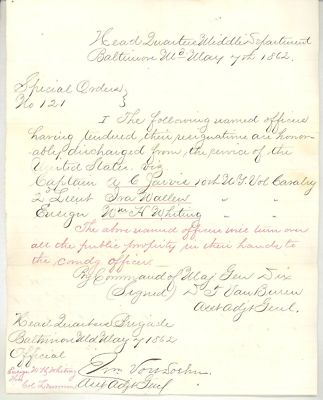 Head Quarters Middle Department
Baltimore Md May 7th 1862.
Special Orders }
No 121
I The following named officers
having tendered their resignations are honor-
ably discharged from the service of the
United States Viz
Captain C Jarvis 10th N.Y. Vol Cavalry
2d Lieut Ira Wallen " "
Ensign Wm H Whiting " "
The above named officers will turn over
all the public property in their hands to
the comdg officer.
By Command of Maj Gen Dix
(Signed) D T Van Buren
Asst Adjt Genl.
Head Quarters Brigade
Baltimore Md May 7 1862
Official
Ensign W H Whiting
Thro
Col Lemmon
Asst Adjt Genl